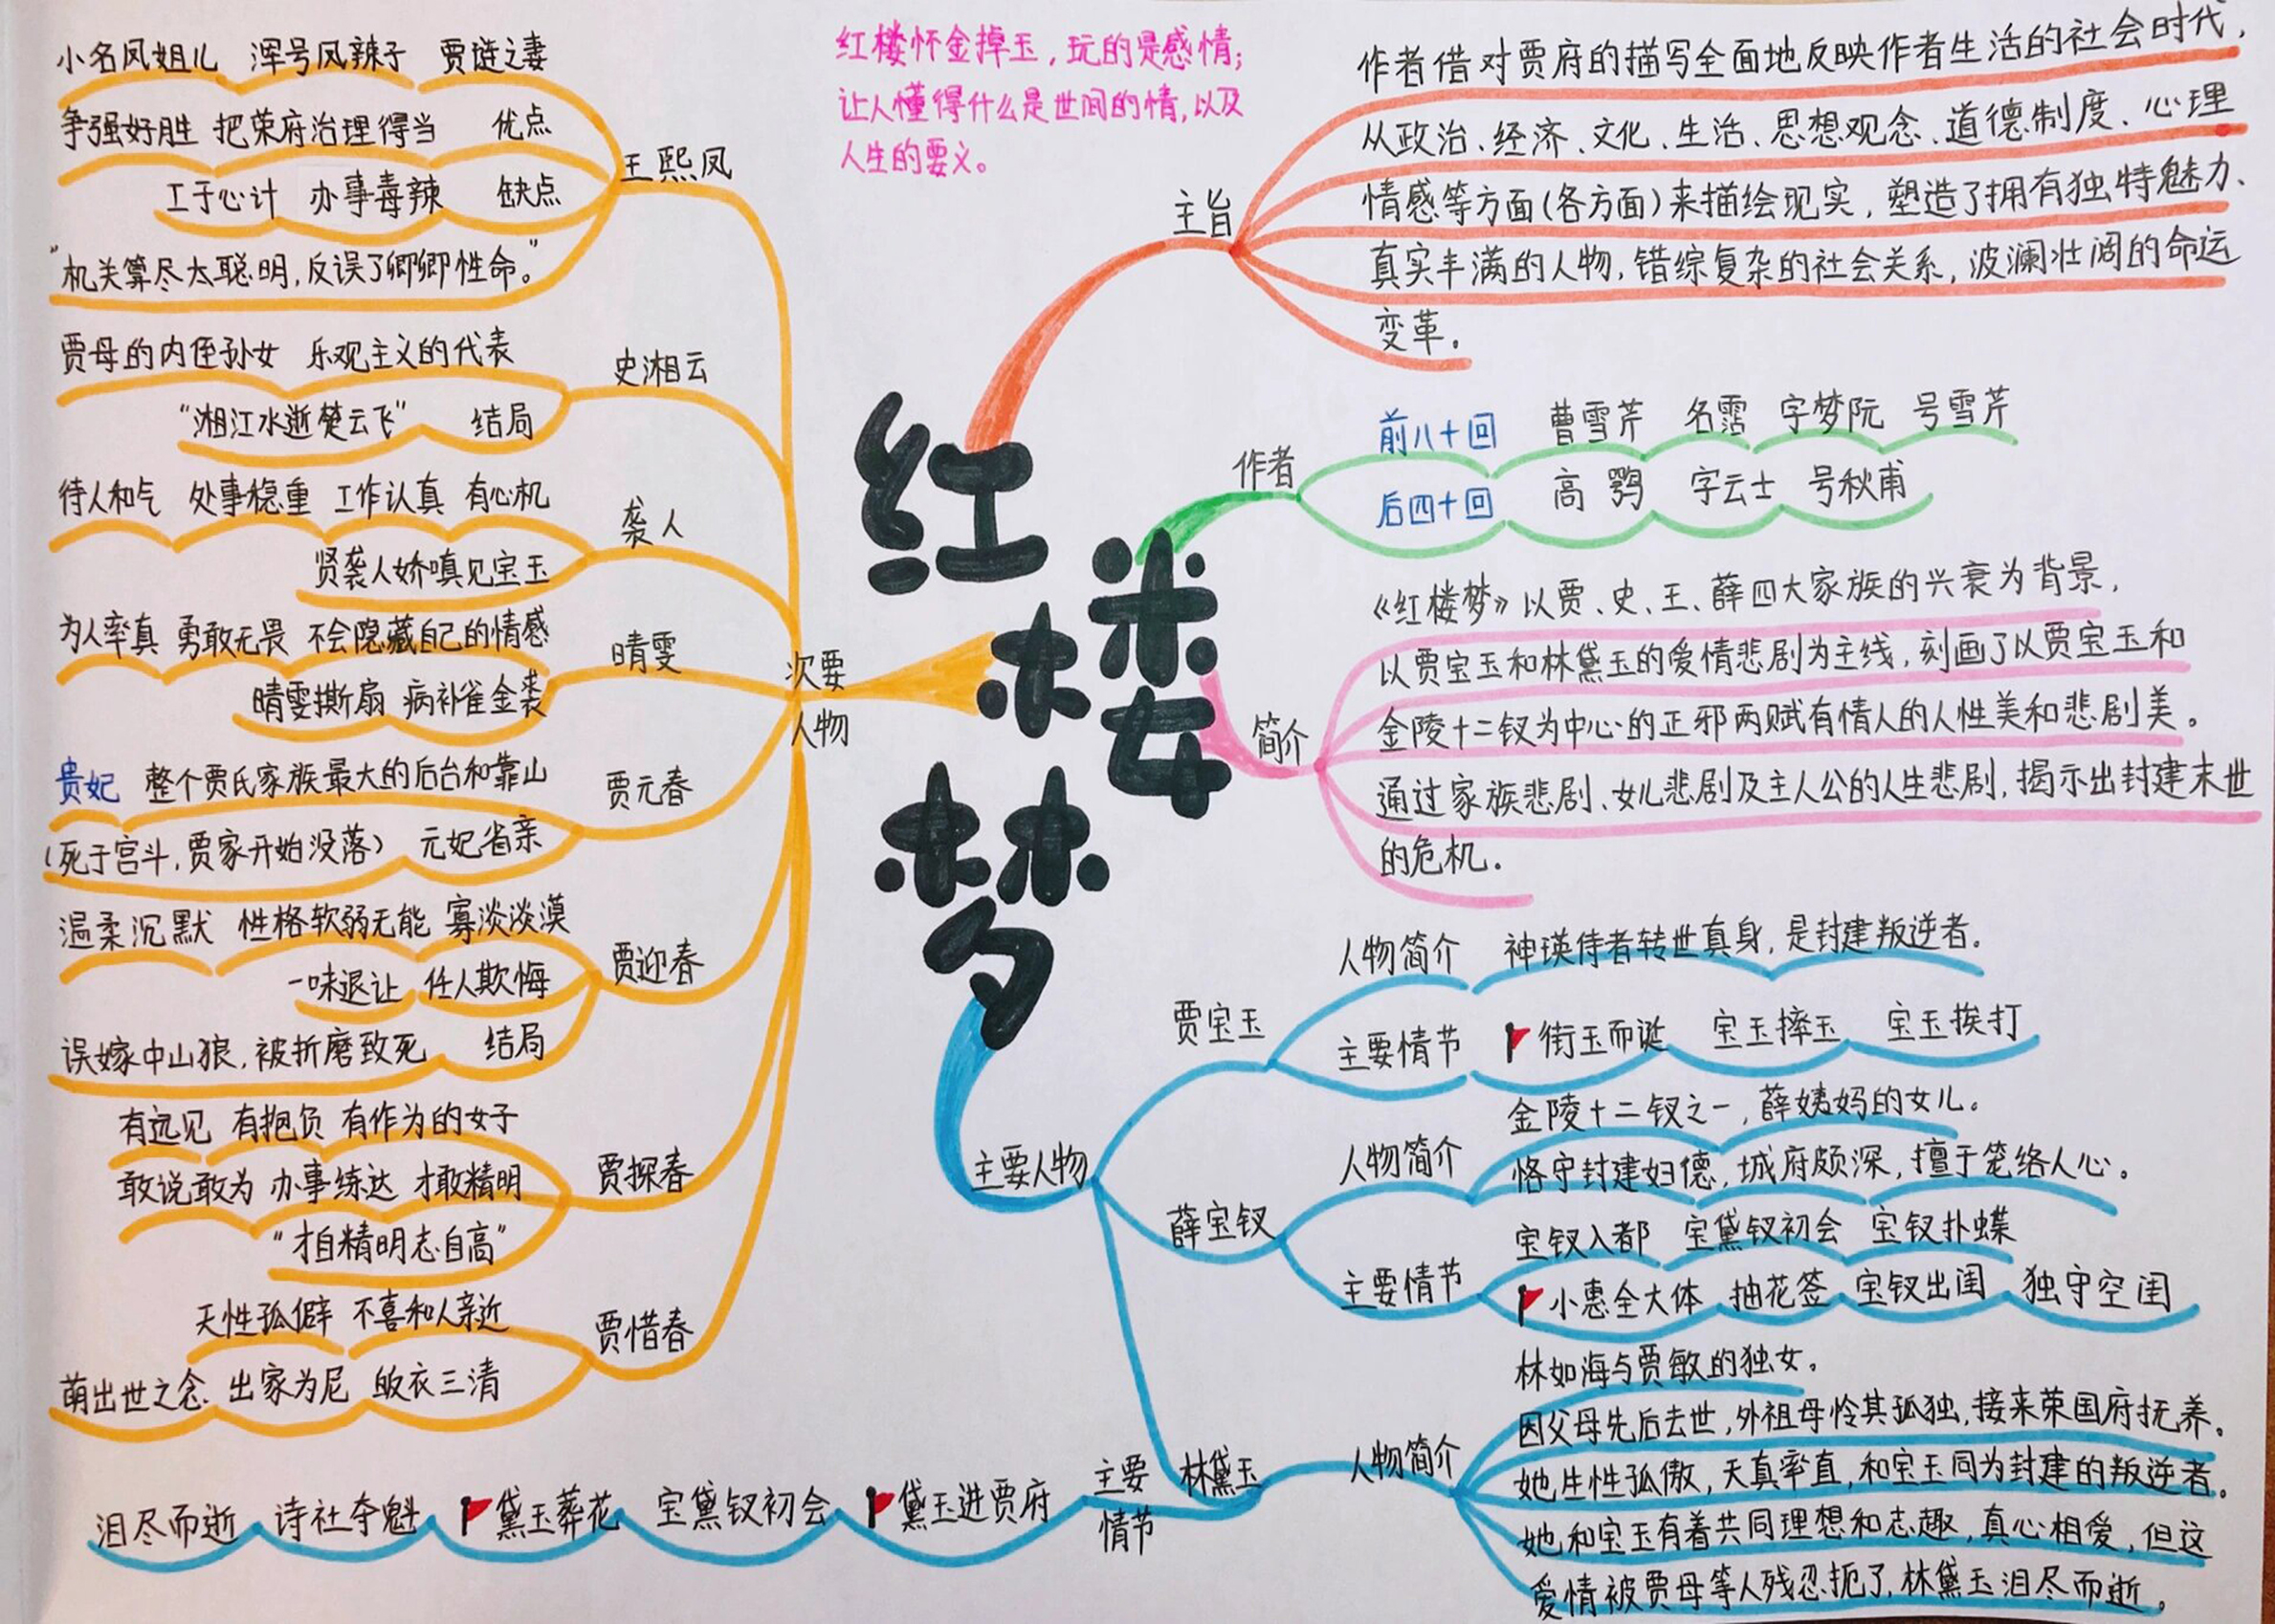 红楼梦
红楼怀金掉玉，玩的是感情；
让人懂得什么是世间的情，以及
人生的要义。
主旨
作者借对贾府的描写全面地反映作者生活的社会时代，
从政治、经济、文化、生活、思想观念、道德制度、心理
情感等方面(各方面)来描绘现实，塑造了拥有独特魅力、
真实丰满的人物，错综复杂的社会关系，波澜壮阔的命运
变革。
作者
前八十回 曹雪芹 名霑 字梦阮 号雪芹
后四十回 高鹗 字云士 号秋甫
简介
《红楼梦》以贾、史、王、薛四大家族的兴衰为背景，
以贾宝玉和林黛玉的爱情悲剧为主线，刻画了以贾宝玉和
金陵十二钗为中心的正邪两赋有情人的人性美和悲剧美。
通过家族悲剧、女儿悲剧及主人公的人生悲剧，揭示出封建末世
的危机。
主要人物
贾宝玉
人物简介 神瑛侍者转世真身，是封建叛逆者。
主要情节 街玉而诞 宝玉摔玉 宝玉挨打
薛宝钗
人物简介
金陵十二钗之一，薛姨妈的女儿。
恪守封建妇德，城府颇深，擅于笼络人心。
主要情节
宝钗入都 宝黛钗初会 宝钗扑蝶
小惠全大体 抽花签 宝钗出闺 独守空闺
林黛玉
人物简介
林如海与贾敏的独女。
因父母先后去世，外祖母怜其孤独，接来荣国府抚养。
她生性孤傲，天真率直，和宝玉同为封建的叛逆者。
她和宝玉有着共同理想和志趣，真心相爱，但这
爱情被贾母等人残忍扼了，林黛玉泪尽而逝。
主要
情节
泪尽而逝 诗社夺魁 黛玉葬花 宝黛钗初会 黛玉进贾府
次要
人物
王熙凤
小名凤姐儿 浑号凤辣子 贾琏之妻
争强好胜 把荣府治理得当 优点
工于心计 办事毒辣 缺点
“机关算尽太聪明，反误了卿卿性命。”
史湘云
贾母的内侄孙女 乐观主义的代表
“湘江水逝楚云飞” 结局
袭人
待人和气 处事稳重 工作认真 有心机
贤袭人娇嗔见宝玉
晴雯
为人率真 勇敢无畏 不会隐藏自己的情感
晴雯撕扇 病补雀金裘
贾元春
贵妃 整个贾氏家族最大的后台和靠山
(死于宫斗，贾家开始没落) 元妃省亲
贾迎春
温柔沉默 性格软弱无能 寡淡淡漠
一味退让 任人欺悔
误嫁中山狼，被折磨致死 结局
贾探春
有远见 有抱负 有作为的女子
敢说敢为 办事练达 才敢精明
“才自精明志自高”
贾惜春
天性孤僻 不喜和人亲近
萌出世之念 出家为尼 皈衣三清